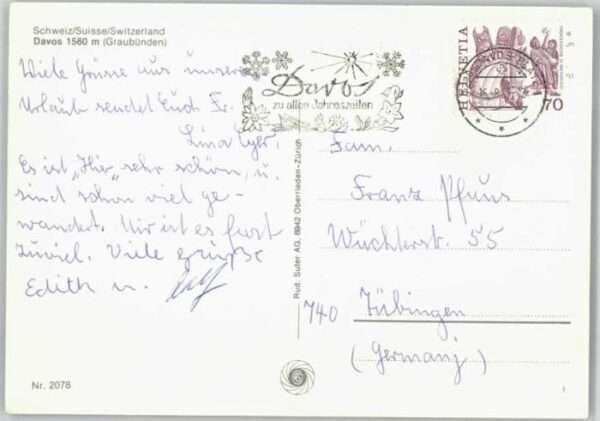 Schweiz/Suisse/Switzerland
Davos 1560 m (Graubünden)
Viele Grüsse aus unserem
Urlaub sendet Euch Fr.
Lina
Es ist "Hier" sehr schön, u.
sind schon viel ge-
wandert. Mir ist es fast
zuviel. Viele Grüße
Edith u.
Nr. 2078
Rud. Suter AG, 8942 Oberrieden-Zürich
Davos
zu allen Jahreszeiten
HELVETIA
70
DAVOS
Fam.
Franz Pfuus
Wächterst. 55
740 Tübingen
(Germany)